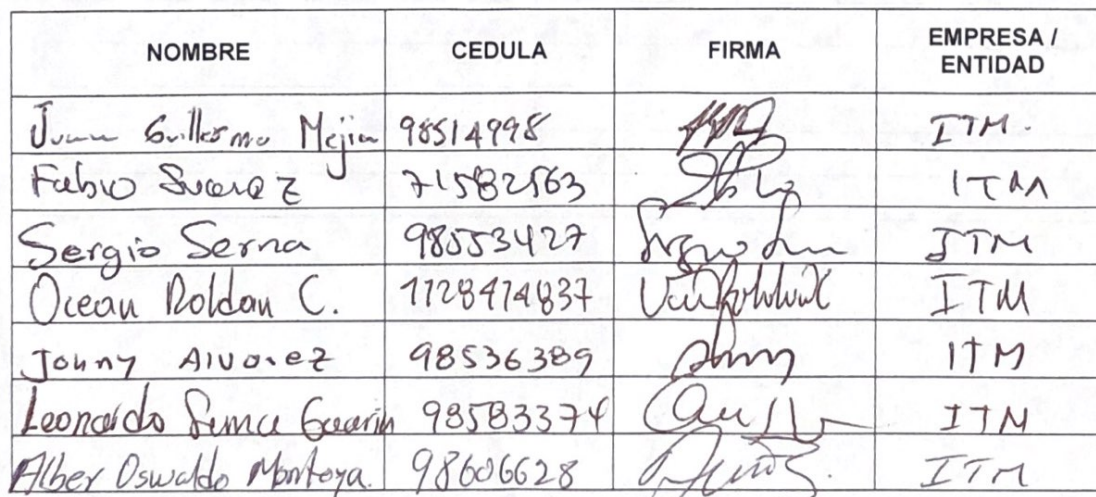 NOMBRE CEDULA FIRMA EMPRESA / ENTIDAD
Juan Guillermo Mejia 98514998 ITM.
Fabio Suarez 71582563 ITM
Sergio Serna 98553427 ITM
Ocean Roldan C. 1128414837 ITM
Jonny Alvarez 98536389 ITM
Leonardo Serna 98583374 ITM
Alber Oswaldo Montoya. 98606628 ITM